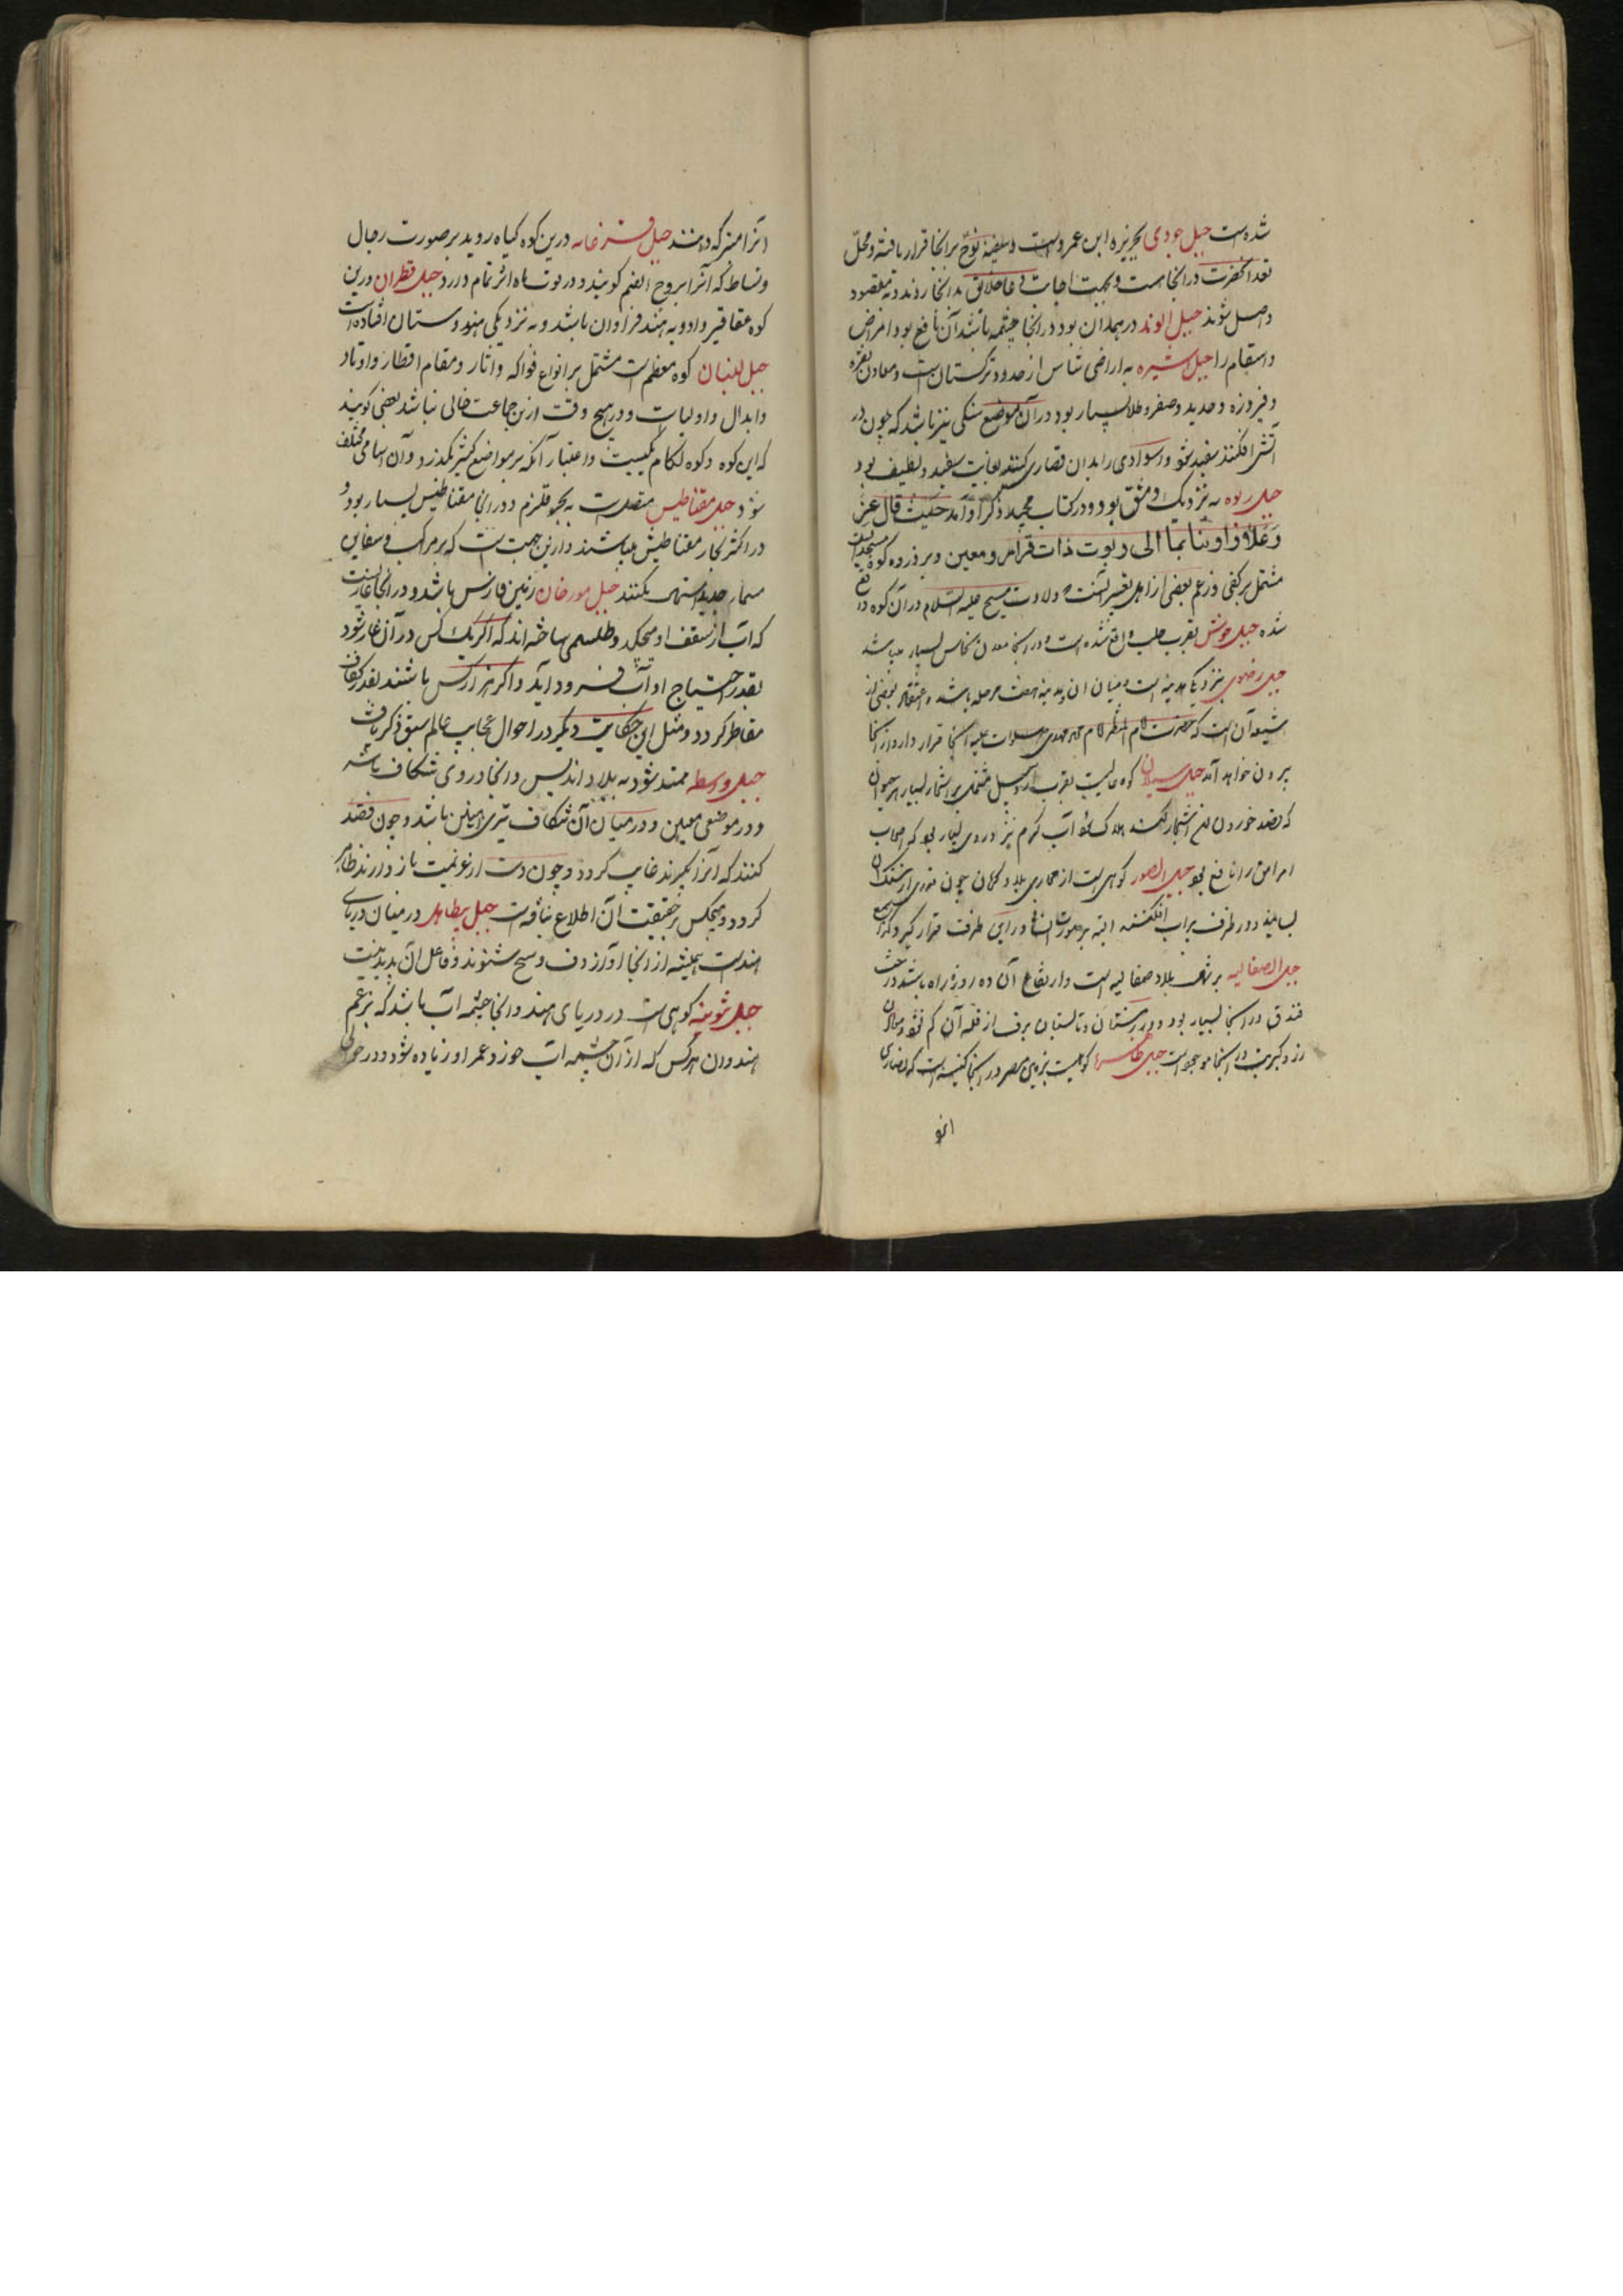 شده است جبل جودی بجزیره ابن عمروست و سفینه نوح بر آنجا قرار یافته و محل
تعبد آنحضرت در آنجاست و بجهت اجابت دعا خلائق بدانجا روند و به مقصود
واصل شوند جبل الوند در همدان بود در آنجا چشمه باشد آن نافع بود امراض
و اسقام را جبل اسبره به اراضی شاس از حدود ترکستان است و معادن نقره
و فیروزه و حدید و صفر و طلا بسیار بود در آن موضع سنگی نیز باشد که چون در
آتش افکنند سفید شود و اسوادی را بدان قصاری کنند بغایت سفید و لطیف بود
جبل ربوه به نزدیک دمشق بود و در کتاب مجید ذکر او آمد حیث قال عز
وعلا و اویناهما الی ربوت ذات قرار ومعین و بر ذروه کوه مسجدیست
مشتمل بر کفی و زعم بعضی از اهل تفسیر آنست که ولادت مسیح علیه السلام در آن کوه واقع
شده جبل جوشن بقرب حلب واقع شده است و در آنجا معدن نحاس بسیار میباشد
جبل رضوی بنزدیک مدینه است و میان آن و مدینه هفت مرحله باشد و اعتقاد بعضی از
شیعه آن است که حضرت امام محمد مهدی صلوات علیه آنجا قرار دارد و از آنجا
بیرون خواهد آمد جبل سبلان کوه عالیست بقرب اردبیل مشتمل بر اشجار بسیار هر حیوان
که قصد خوردن اشجار کند هلاک شود آب گرم نیز در وی بسیار بود که اصحاب
امراض را نافع بود جبل الصور کوهی است از صحاری بلاد کرمان چون قدری از سنگ آن
بسایند و در ظرف پر آب افکنند البته بر صورت انسان در آن ظرف قرار گیرد
جبل الصقالیه بر شرف بلاد صقالیه است و ارتفاع آن ده روزه راه باشد درخت
فندق در آنجا بسیار بود و در زمستان و تابستان برف از قله آن کم نشود و معادن
زر و کبریت در آنجا موجود است جبل طاهره کوهیست بزمین مصر در آنجا کنیسه است که نصاری
انو
آنرا متبرکه دانند جبل فرغانه درین کوه گیاه روید بر صورت رجال
و نسا که آنرا یبروح الصنم گویند و در قوت باه اثر تمام دارد جبل قطران درین
کوه عقاقیر و ادویه هند فراوان باشد و به نزدیکی هندوستان افتاده است
جبل لبنان کوه معظم است مشتمل بر انواع فواکه و اثار و مقام اقطار و اوتاد
و ابدال و اولیات و در هیچ وقت ازین جماعت خالی نباشد بعضی گویند
که این کوه و کوه لکام یکیست و اعتبار آنکه بر مواضع کثیر بگذرد و آن اسامی مختلف
شود جبل مقناطیس متصل است به بحر قلزم و در آنجا مقناطیس بسیار بود و
در اکثر بحار مقناطیس میباشند و ازین جهت است که بر مراکب و سفاین
مسمار حدید استعمال نکنند جبل مورخان زمین فارس باشد و در آنجا غاریست
که آب از سقف او میچکد و طلسمی ساخته اند که اگر یک کس در آن غار شود
بقدر احتیاج او آب فرود آید و اگر هزار کس باشند بقدر کفاف
مقاطر گردد و مثل این حکایت دیگر در احوال عجایب عالم سبق ذکر یافت
جبل واسطه ممتد شود به بلاد اندلس و آنجا در وی شکاف باشد
و در موضعی معین و در میان آن شکاف تبری آهنین باشد و چون قصد
کنند که آنرا بگیرند غایب گردد و چون دست از عزیمت باز دارند ظاهر
گردد و هیچکس بر حقیقت آن اطلاع نیافت جبل یطاهل در میان دریای
هندست همیشه از آنجا آواز دف و سنج شنوند و فاعل آن پدید نیست
جبل شوینه کوهی است در دریای هند و آنجا چشمه آب باشد که بزعم
هندوان هرکس که از آن چشمه آب خورد عمر او زیاده شود و در حوالی